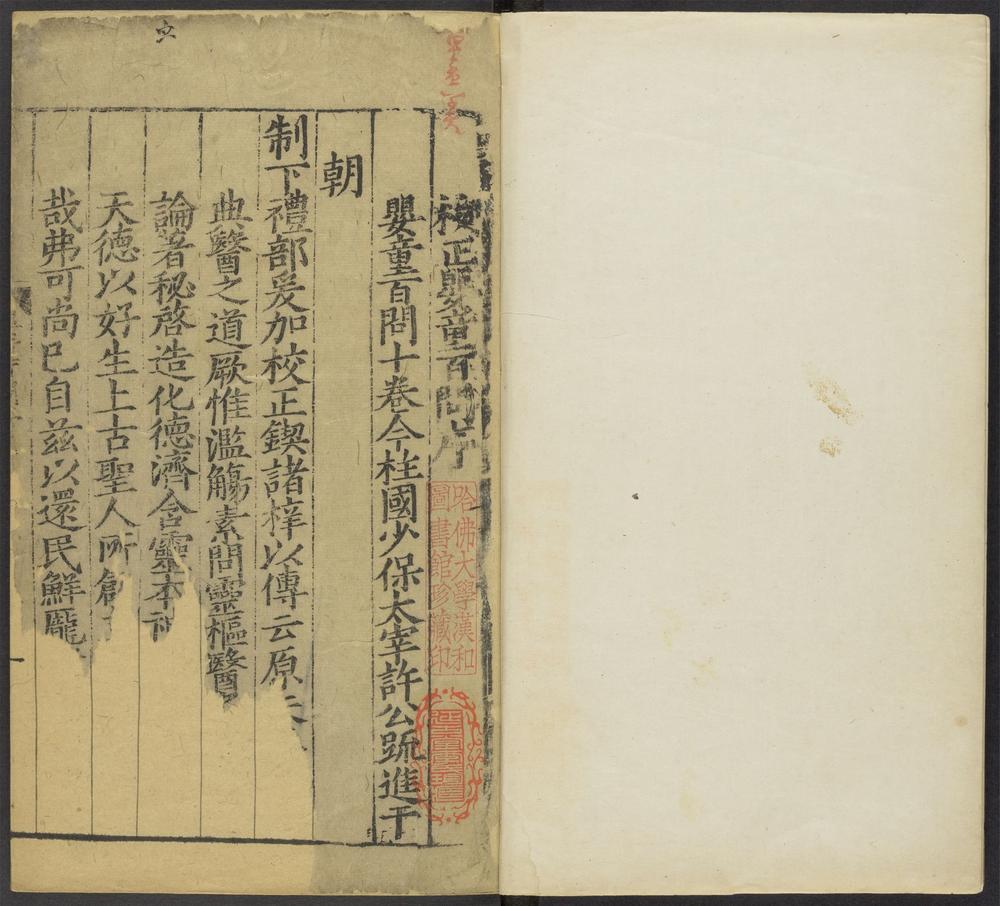 校正嬰童百問序
嬰童百問十卷今柱國少保太宰許公疏進于
朝
制下禮部爰加校正鍥諸梓以傳云原夫
典醫之道厥惟濫觴素問靈樞醫
論著秘啓造化德濟含靈本
天德以好生上古聖人所創
哉弗可尚已自茲以還民鮮龐
哈佛大學漢和
圖書館珍藏印